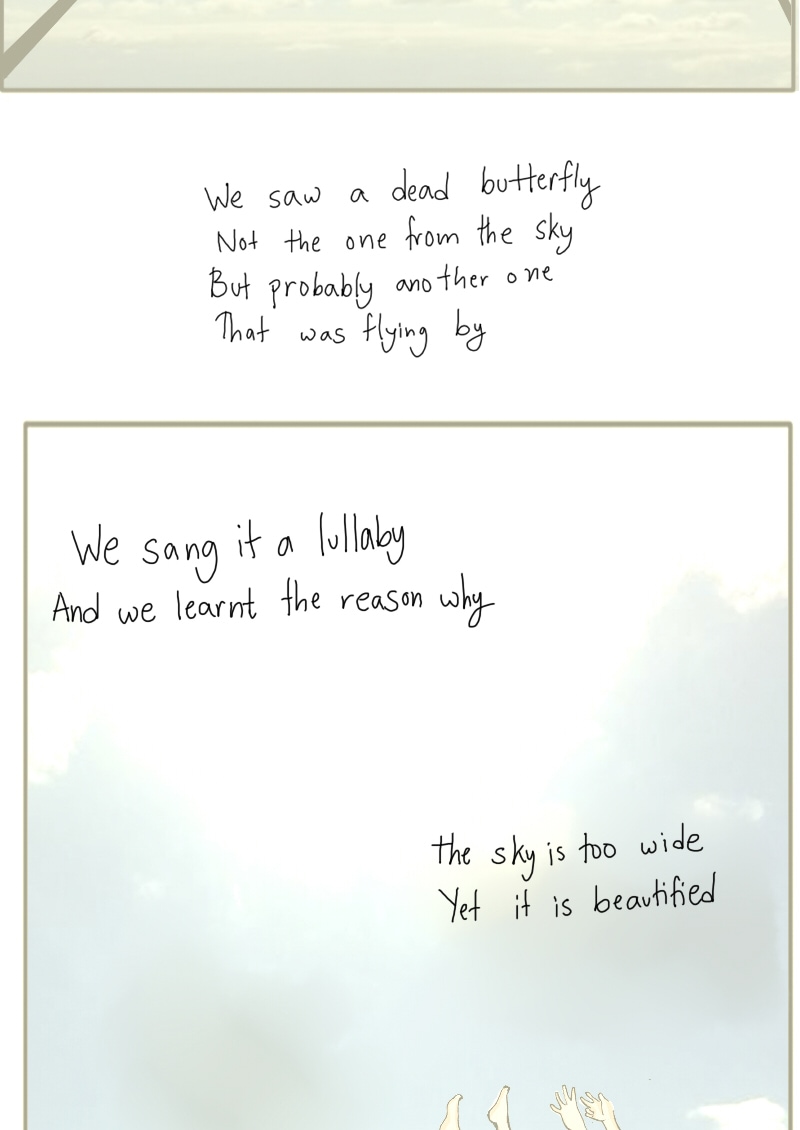 We saw a dead butterfly
Not the one from the sky
But probably another one
That was flying by
We sang it a lullaby
And we learnt the reason why
the sky is too wide
Yet it is beautified